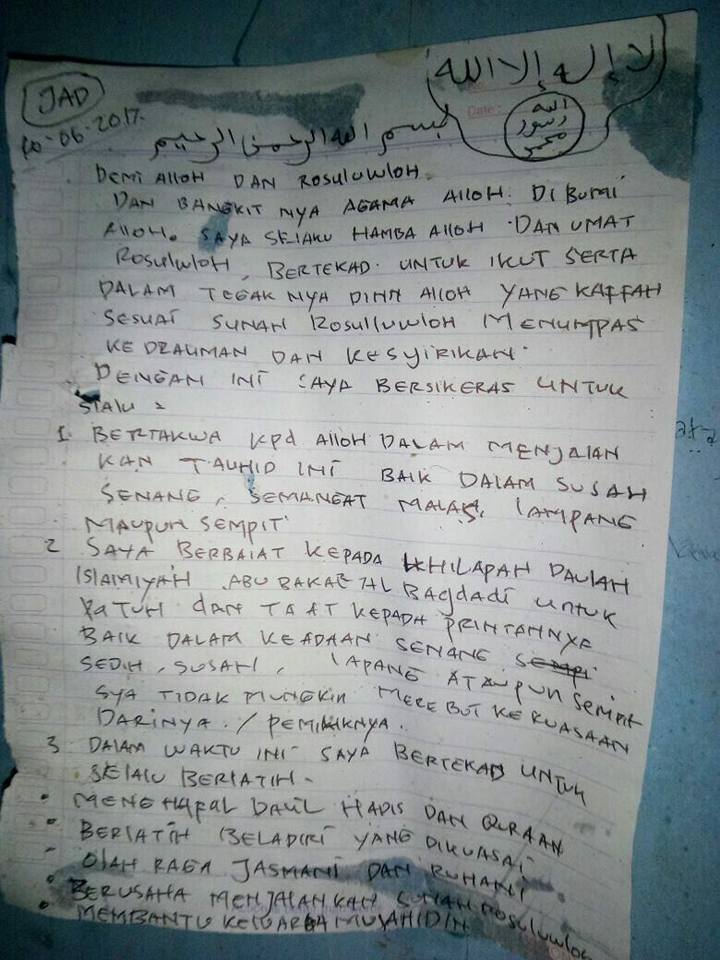 JAD
لا إله إلا الله
Date :
10-06-2017.
الله
رسول
محمد
بسم الله الرحمن الرحيم
DEMI Alloh DAN ROSULUWLOH.
DAN BANGKIT NYA AGAMA Alloh. DI BUMI
Alloh. SAYA SELAKU HAMBA Alloh DAN UMAT
ROSULUWLOH, BERTEKAD UNTUK IKUT SERTA
DALAM TEGAK NYA DINN Alloh YANG KAFFAH
SESUAI SUNAH ROSULLUWLOH MENUMPAS
KEDZALIMAN DAN KESYIRIKAN.
DENGAN INI SAYA BERSIKERAS UNTUK
SlAlU :
1. BERTAKWA Kpd Alloh DALAM MENJALAN
KAN TAUHID INI BAIK DALAM SUSAH
SENANG, SEMANGAT MALAS, lAMPANG
MAUPUN SEMPIT.
2 SAYA BERBAIAT KEPADA KHILAPAH DAULAH
ISLAMIYAH ABU BAKAR AL BAGDADI UNTUK
PATUH dAN TAAT KEPADA PRINTAHNYA
BAIK DALAM KEADAAN SENANG
SEDIH, SUSAH, lAPANG ATAUPUN SEMPIT
SYA TIDAK MUNGKIN MEREBUT KEKUASAAN
DARINYA. / PEMILIKNYA.
3 DALAM WAKTU INI SAYA BERTEKAD UNTUK
SELALU BERLATIH -
• MENGHAPAL DALIL HADIS DAN QURAAN
• BERLATIH BELADIRI YANG DIKUASAI
- OLAH RAGA JASMANI DAN RUHANI
• BERUSAHA MENJALANKAN SUNAH ROSULUWLOH
• MEMBANTU KELUARGA MUJAHIDIN